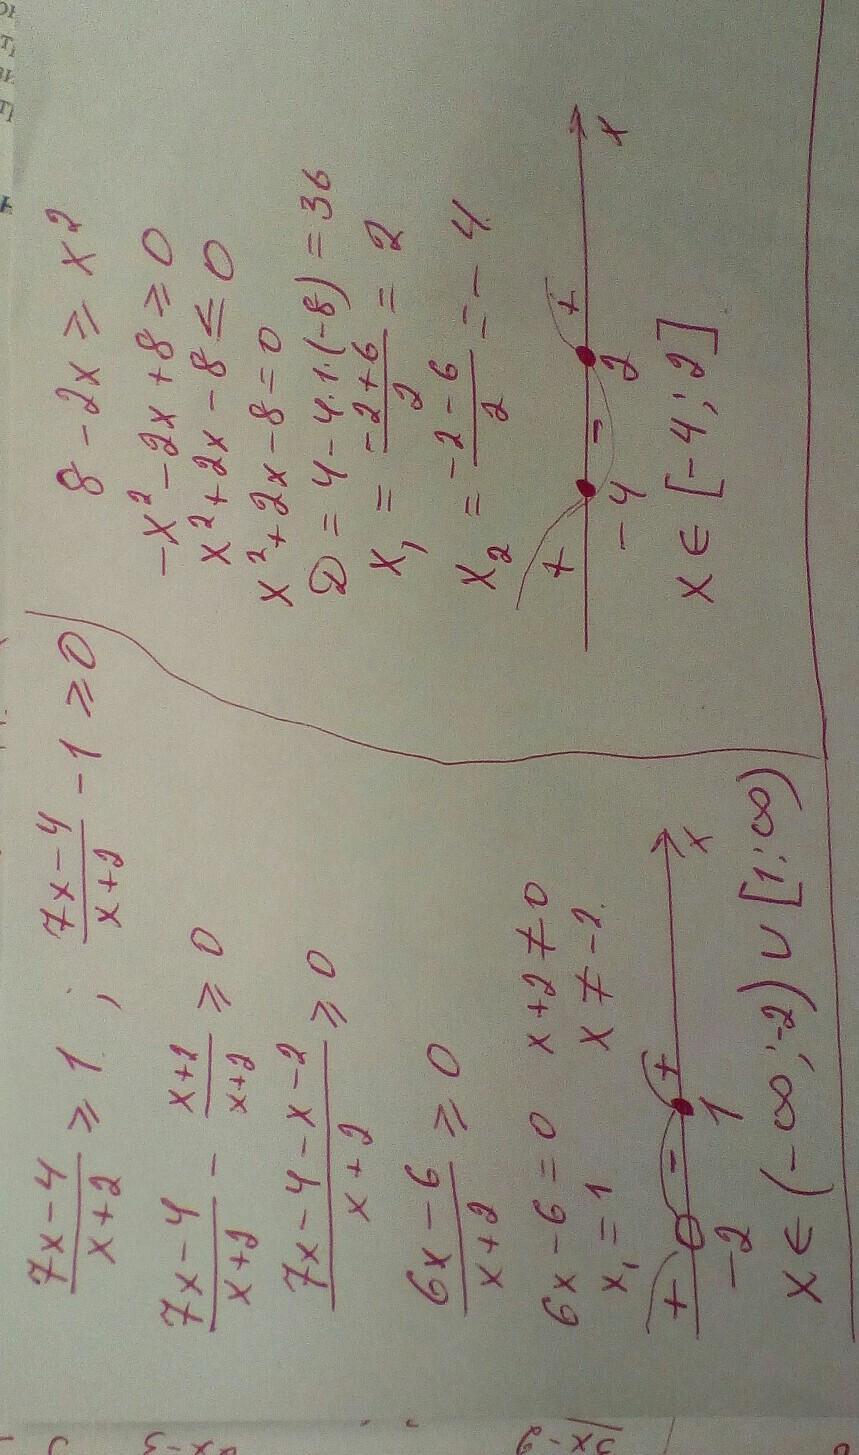 7x-4/x+2 ≥ 1 ; 7x-4/x+2 -1 ≥ 0
7x-4/x+2 - x+2/x+2 ≥ 0
7x-4-x-2/x+2 ≥ 0
6x-6/x+2 ≥ 0
6x-6=0 x+2≠0
x₁=1 x≠-2.
+ - +
-2 1 x
x∈(-∞;-2)∪[1;∞)
8-2x ≥ x²
-x²-2x+8 ≥ 0
x²+2x-8 ≤ 0
x²+2x-8=0
D=4-4·1·(-8)=36
x₁ = -2+6/2 = 2
x₂ = -2-6/2 = -4
+ - +
-4 2 x
x∈[-4;2]